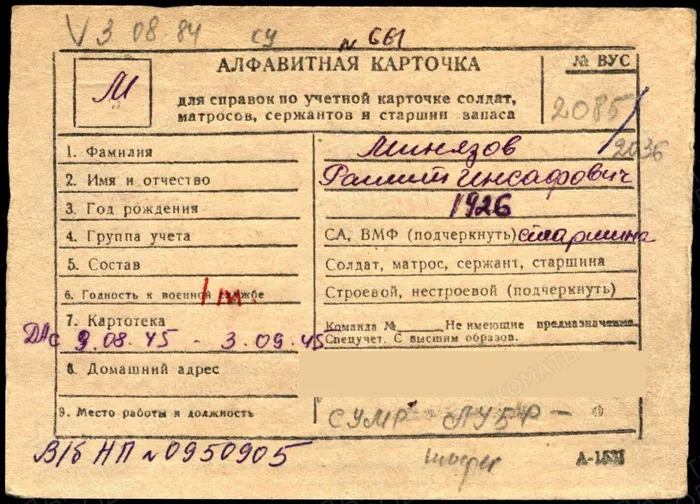 V 3 08.84 СУ № 661
АЛФАВИТНАЯ КАРТОЧКА
№ ВУС
М
для справок по учетной карточке солдат,
матросов, сержантов и старшин запаса
2085/
2036
1. Фамилия Минязов
2. Имя и отчество Рашит Инсафович
3. Год рождения 1926
4. Группа учета СА, ВМФ (подчеркнуть) старшина
5. Состав Солдат, матрос, сержант, старшина
6. Годность к военной службе Строевой, нестроевой (подчеркнуть)
7. Картотека Команда № Не имеющие предназначения
Спецучет. С высшим образов.
9.08.45 - 3.09.45
8. Домашний адрес
9. Место работы и должность СУМР ЛУБР –
В/б НП № 0950905 шофер